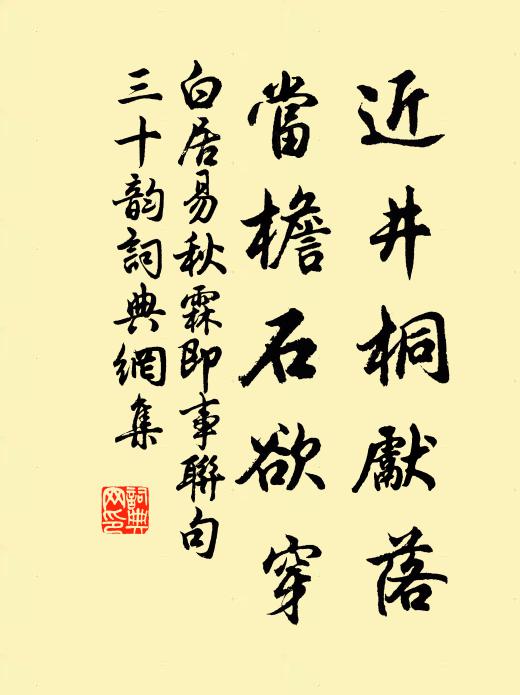 近井桐獻落
當檐石欲穿
白居易秋霖即事聯句
三十韵詞典網集
詞典
网印